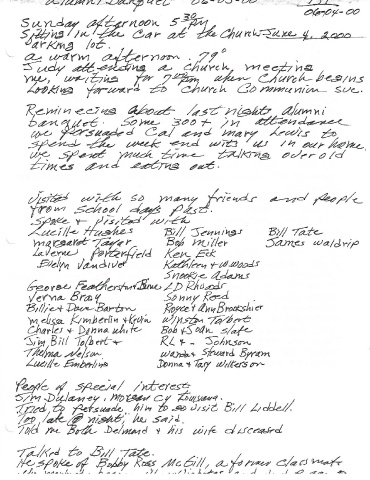 Alumni Banquet 06-03-00
06-04-00
Sunday afternoon 5 30 PM
Sitting in the car at the Church June 4, 2000
Parking lot.
a warm afternoon. 79°
Judy attending a church, meeting
me, waiting for 7 when church begins
Looking forward to Church Communion
Reminecing about last nights alumni
banquet. Some 300+ in attendance
we persuaded Cal and mary Lewis to
spend the week end with us in our home.
we spent much time talking over old
times and eating out.
Visited with so many friends and people
from School days past.
Spoke & visited with
Lucille Hughes Bill Jennings Bill Tate
margaret Taylor Bob Miller James Waldrip
Laverne Porterfield Ken Eck
Evelyn Vandiver Kathleen & woods
Snookie Adams
George Featherston & LD Rhoads
Verna Bray Sonny Reed
Billie & Dave Barton Royce & Ann Brookshier
melisa Kimberlin & Kevin Winston Tolbert
Charles & Donna White Bob & Joan Slape
Jim Bill Tolbert & RL & - Johnson
Thelma Nelson Wanda & Steward Byram
Lucille Emberlin Donna & Tary Wilkerson
People of special interest
Jim Dulaney, Morgan Cy Louisana.
Tried to persuade him to so visit Bill Liddell.
Too late @ night, he said.
Told me Both Delmond & his wife deseased
Talked to Bill Tate.
He spoke of Bobby Ross McGill, a former classmate